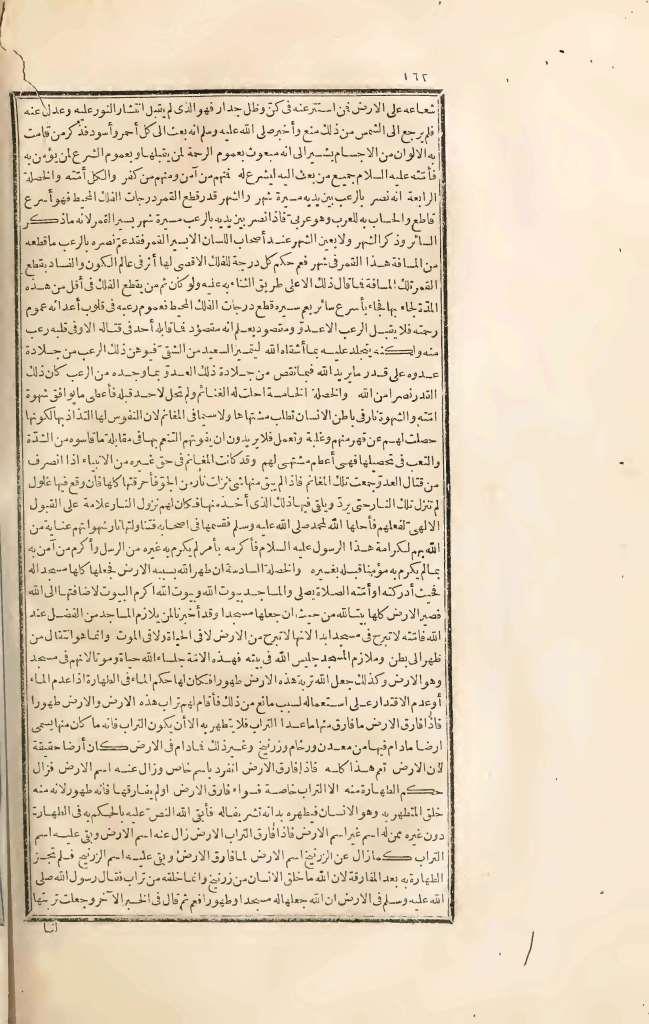 ١٦٢
شعاعه على الارض فمن استتر عنه فى كنّ وظل جدار فهو الذى لم يقبل انتشار النور عليه وعدل عنه
فلم يرجع الى الشمس من ذلك منع وأخبر صلى الله عليه وسلم انه بعث الى كل أحمر وأسود فذكر من قامت
به الالوان من الاجسام يشير الى انه مبعوث بعموم الرحمة لمن يقبلها وبعموم الشرع لمن يؤمن به
فأمته عليه السلام جميع من بعث اليه ليشرع له فمنهم من آمن ومنهم من كفر والكل أمته والخصلة
الرابعة انه نصر بالرعب بين يديه مسيرة شهر والشهر قدر قطع القمر درجات الفلك المحيط فهو أسرع
قاطع والحساب به للعرب وهو عربىّ فاذا نصر بين يديه بالرعب مسيرة شهر بسير القمر لانه ما ذكر
السائر وذكر الشهر ولا يعين الشهر عند أصحاب اللسان الا بسير القمر فقد عم نصره بالرعب ما قطعه
من المسافة هذا القمر فى شهر فعم حكم كل درجة للفلك الاقصى لها أثر فى عالم الكون والفساد بقطع
القمر تلك المسافة فما قال ذلك الا على طريق الثناء به عليه ولو كان ثم من يقطع الفلك فى أقل من هذه
المدّة لجاء بها فجاء بأسرع سائر يعم سيره قطع درجات الفلك المحيط فعموم رعبه فى قلوب أعدائه عموم
رحمته فلا يقبل الرعب الا عدوّ ومقصود يعلم انه مقصود فما قابله أحد فى قتاله الا وفى قلبه رعب
منه ولكنه يتجلد عليه بما أشقاه الله ليتميز السعيد من الشقىّ فيوهن ذلك الرعب من جلادة
عدوه على قدر ما يريد الله فما نقص من جلادة ذلك العدوّ بما وجده من الرعب كان ذلك
القدر نصرا من الله والخصلة الخامسة احلت له الغنائم ولم تحل لاحد قبله فأعطى ما يوافق شهوة
امّته والشهوة نار فى باطن الانسان تطلب مشتهاها ولا سيما فى المغانم لان النفوس لها التذاذ بها لكونها
حصلت لهم عن قهر منهم وغلبة وتعمل فلا يريدون ان يفوتهم التنعم بها فى مقابلة ما قاسوه من الشدّة
والتعب فى تحصيلها فهى أعظم مشتهى لهم وقد كانت المغانم فى حق غيره من الانبياء اذا انصرف
من قتال العدوّ جمعت تلك المغانم فاذا لم يبق منها شئ نزلت نار من الجوّ فأحرقتها كلها فان وقع فيها غلول
لم تنزل تلك النار حتى يردّ ويلقى فيها ذلك الذى أخذ منها فكان لهم نزول النار علامة على القبول
الالهى لفعلهم فأحلها الله لمحمد صلى الله عليه وسلم فقسمها فى اصحابه فتناولتها نار شهواتهم عناية من
الله بهم لكرامة هذا الرسول عليه السلام فأكرمه بأمر لم يكرم به غيره من الرسل وأكرم من آمن به
بما لم يكرم به مؤمنا قبله بغيره والخصلة السادسة ان طهر الله بسببه الارض فجعلها كلها مسجدا له
فحيث أدركته او أمته الصلاة يصلى والمساجد بيوت الله وبيوت الله اكرم البيوت لاضافتها الى الله
فصير الارض كلها بيت الله من حيث ان جعلها مسجدا وقد أخبرنا ان من يلازم المساجد من الفضل عند
الله فأمته لا تبرح فى مسجد ابدا لانها لا تبرح من الارض لا فى الحياة ولا فى الموت وانما هو انتقال من
ظهر الى بطن وملازم المسجد جليس الله فى بيته فهذه الامّة جلساء الله حياة وموتا لانهم فى مسجد
وهو الارض وكذلك جعل الله تربة هذه الارض طهورا فكان لها حكم الماء فى الطهارة اذا عدم الماء
أو عدم الاقتدار على استعماله لسبب مانع من ذلك فأقام لهم تراب هذه الارض والارض طهورا
فاذا فارق الارض ما فارق منها ما عدا التراب فلا يتطهر به الا أن يكون التراب فانه ما كان منها يسمى
ارضا ما دام فيها من معدن ورخام وزرنيخ وغير ذلك فما دام فى الارض كان أرضا حقيقة
لان الارض تعم هذا كله فاذا فارق الارض انفرد باسم خاص وزال عنه اسم الارض فزال
حكم الطهارة منه الا التراب خاصة فسواء فارق الارض او لم يفارقها فانه طهور لانه منه
خلق المتطهر به وهو الانسان فيطهره بذاته تشريفا له فأبقى الله النص عليه بالحكم به فى الطهارة
دون غيره ممن له اسم غير اسم الارض فاذا فارق التراب الارض زال عنه اسم الارض وبقى عليه اسم
التراب كما زال عن الزرنيخ اسم الارض لما فارق الارض وبقى عليه اسم الزرنيخ فلم تجز
الطهارة به بعد المفارقة لان الله ما خلق الانسان من زرنيخ وانما خلقه من تراب فقال رسول الله صلى
الله عليه وسلم فى الارض ان الله جعلها له مسجدا وطهورا فعم ثم قال فى الخبر الآخر وجعلت تربتها
لنا